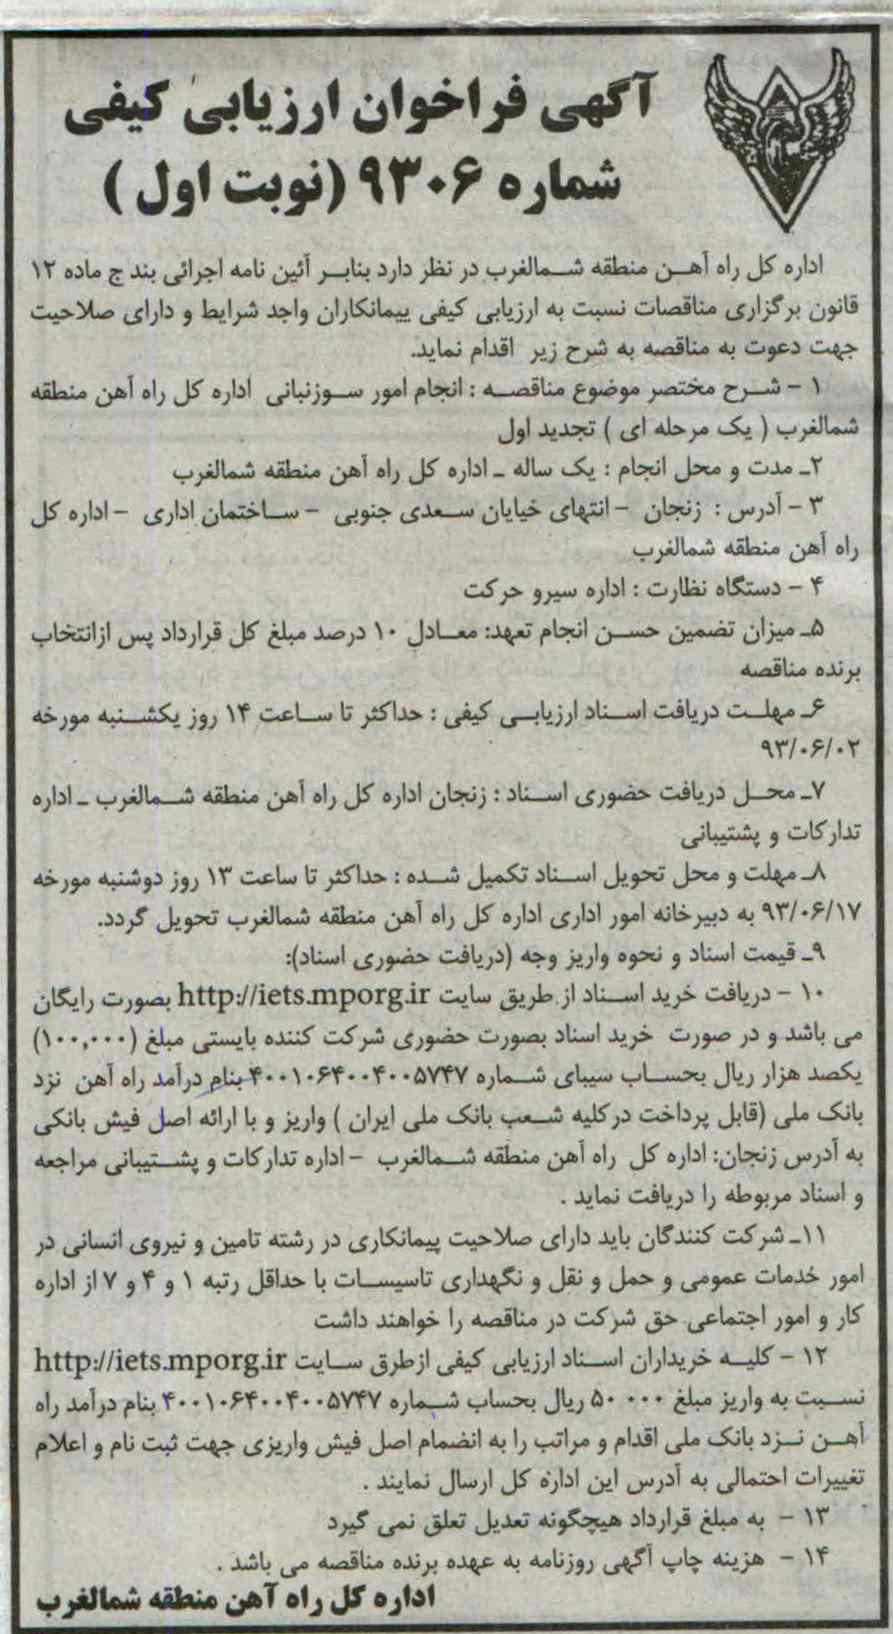 آگهی فراخوان ارزیابی کیفی
شماره ۹۳۰۶ (نوبت اول)
اداره کل راه آهن منطقه شمالغرب در نظر دارد بنابر آئین نامه اجرائی بند ج ماده ۱۲
قانون برگزاری مناقصات نسبت به ارزیابی کیفی پیمانکاران واجد شرایط و دارای صلاحیت
جهت دعوت به مناقصه به شرح زیر اقدام نماید.
۱ - شرح مختصر موضوع مناقصه : انجام امور سوزنبانی اداره کل راه آهن منطقه
شمالغرب ( یک مرحله ای ) تجدید اول
۲ـ مدت و محل انجام : یک ساله ـ اداره کل راه آهن منطقه شمالغرب
۳ - آدرس : زنجان - انتهای خیابان سعدی جنوبی - ساختمان اداری - اداره کل
راه آهن منطقه شمالغرب
۴ - دستگاه نظارت : اداره سیرو حرکت
۵ـ میزان تضمین حسن انجام تعهد: معادل ۱۰ درصد مبلغ کل قرارداد پس ازانتخاب
برنده مناقصه
۶ـ مهلت دریافت اسناد ارزیابی کیفی : حداکثر تا ساعت ۱۴ روز یکشنبه مورخه
۹۳/۰۶/۰۲
۷ـ محل دریافت حضوری اسناد : زنجان اداره کل راه آهن منطقه شمالغرب ـ اداره
تدارکات و پشتیبانی
۸ـ مهلت و محل تحویل اسناد تکمیل شده : حداکثر تا ساعت ۱۳ روز دوشنبه مورخه
۹۳/۰۶/۱۷ به دبیرخانه امور اداری اداره کل راه آهن منطقه شمالغرب تحویل گردد.
۹ـ قیمت اسناد و نحوه واریز وجه (دریافت حضوری اسناد):
۱۰ - دریافت خرید اسناد از طریق سایت http://iets.mporg.ir بصورت رایگان
می باشد و در صورت خرید اسناد بصورت حضوری شرکت کننده بایستی مبلغ (۱۰۰,۰۰۰)
یکصد هزار ریال بحساب سیبای شماره ۴۰۰۱۰۶۴۰۰۴۰۰۵۷۴۷ بنام درآمد راه آهن نزد
بانک ملی (قابل پرداخت درکلیه شعب بانک ملی ایران ) واریز و با ارائه اصل فیش بانکی
به آدرس زنجان: اداره کل راه آهن منطقه شمالغرب - اداره تدارکات و پشتیبانی مراجعه
و اسناد مربوطه را دریافت نماید .
۱۱ـ شرکت کنندگان باید دارای صلاحیت پیمانکاری در رشته تامین و نیروی انسانی در
امور خدمات عمومی و حمل و نقل و نگهداری تاسیسات با حداقل رتبه ۱ و ۴ و ۷ از اداره
کار و امور اجتماعی حق شرکت در مناقصه را خواهند داشت
۱۲ - کلیه خریداران اسناد ارزیابی کیفی ازطرق سایت http://iets.mporg.ir
نسبت به واریز مبلغ ۰۰۰ ۵۰ ریال بحساب شماره ۴۰۰۱۰۶۴۰۰۴۰۰۵۷۴۷ بنام درآمد راه
آهن نزد بانک ملی اقدام و مراتب را به انضمام اصل فیش واریزی جهت ثبت نام و اعلام
تغییرات احتمالی به آدرس این اداره کل ارسال نمایند .
۱۳ - به مبلغ قرارداد هیچگونه تعدیل تعلق نمی گیرد
۱۴ - هزینه چاپ آگهی روزنامه به عهده برنده مناقصه می باشد .
اداره کل راه آهن منطقه شمالغرب